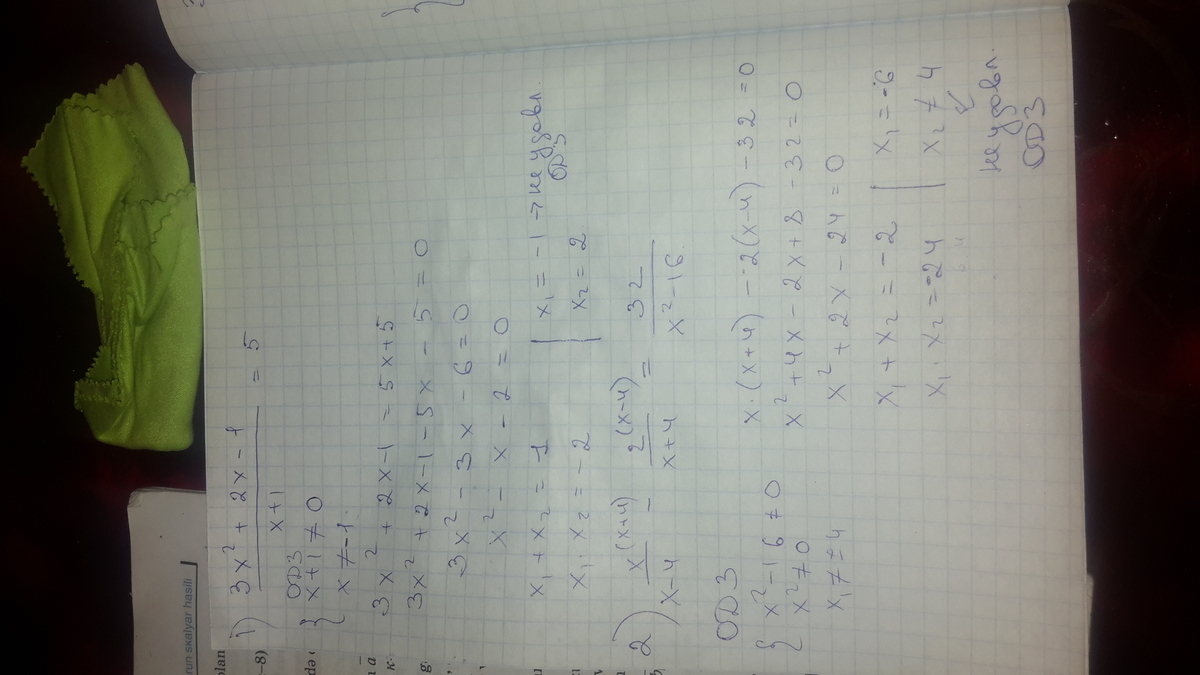 1) (3x² + 2x - 1)/(x+1) = 5
ОДЗ
{ x+1 ≠ 0
x ≠ -1.
3x² + 2x - 1 = 5x + 5
3x² + 2x - 1 - 5x - 5 = 0
3x² - 3x - 6 = 0
x² - x - 2 = 0
x₁ + x₂ = 1 | x₁ = -1 → не удовл.
ОДЗ
x₁ · x₂ = -2 | x₂ = 2
2) x(x+4)/(x-4) - 2(x-4)/(x+4) = 32/(x²-16).
ОДЗ
{ x² - 16 ≠ 0
x² ≠ 0
x₁ ≠ = 4
x·(x+4) - 2(x-4) - 32 = 0
x² + 4x - 2x + 8 - 32 = 0
x² + 2x - 24 = 0
x₁ + x₂ = -2 | x₁ = -6
x₁ · x₂ = -24 | x₂ ≠ 4
не удовл.
ОДЗ
run skalyar hasili
olan
-8)
də